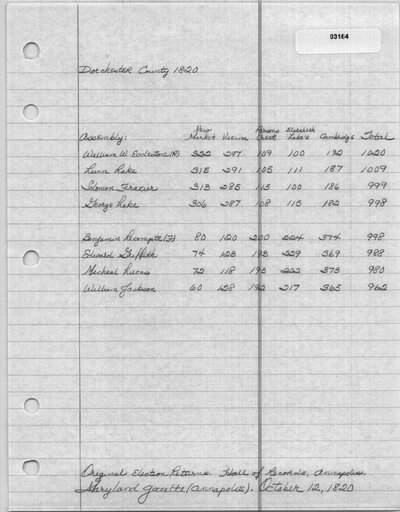 03164
Dorchester County 1820
Assembly: New Market Vienna Parsons Creek Elizabeth Lake's Cambridge Total
William W. Eccleston (R) 322 297 109 100 192 1020
Levin Lake 315 291 105 111 187 1009
Solomon Frazier 313 285 115 100 186 999
George Lake 306 287 108 115 182 998
Benjamin Lecompte (F) 80 120 200 224 374 998
Edward Griffith 74 123 193 229 369 988
Micheal Lucas 72 118 195 222 373 980
William Jackson 60 128 192 217 365 962
Original Election Returns. Hall of Records, Annapolis.
Maryland Gazette (Annapolis). October 12, 1820